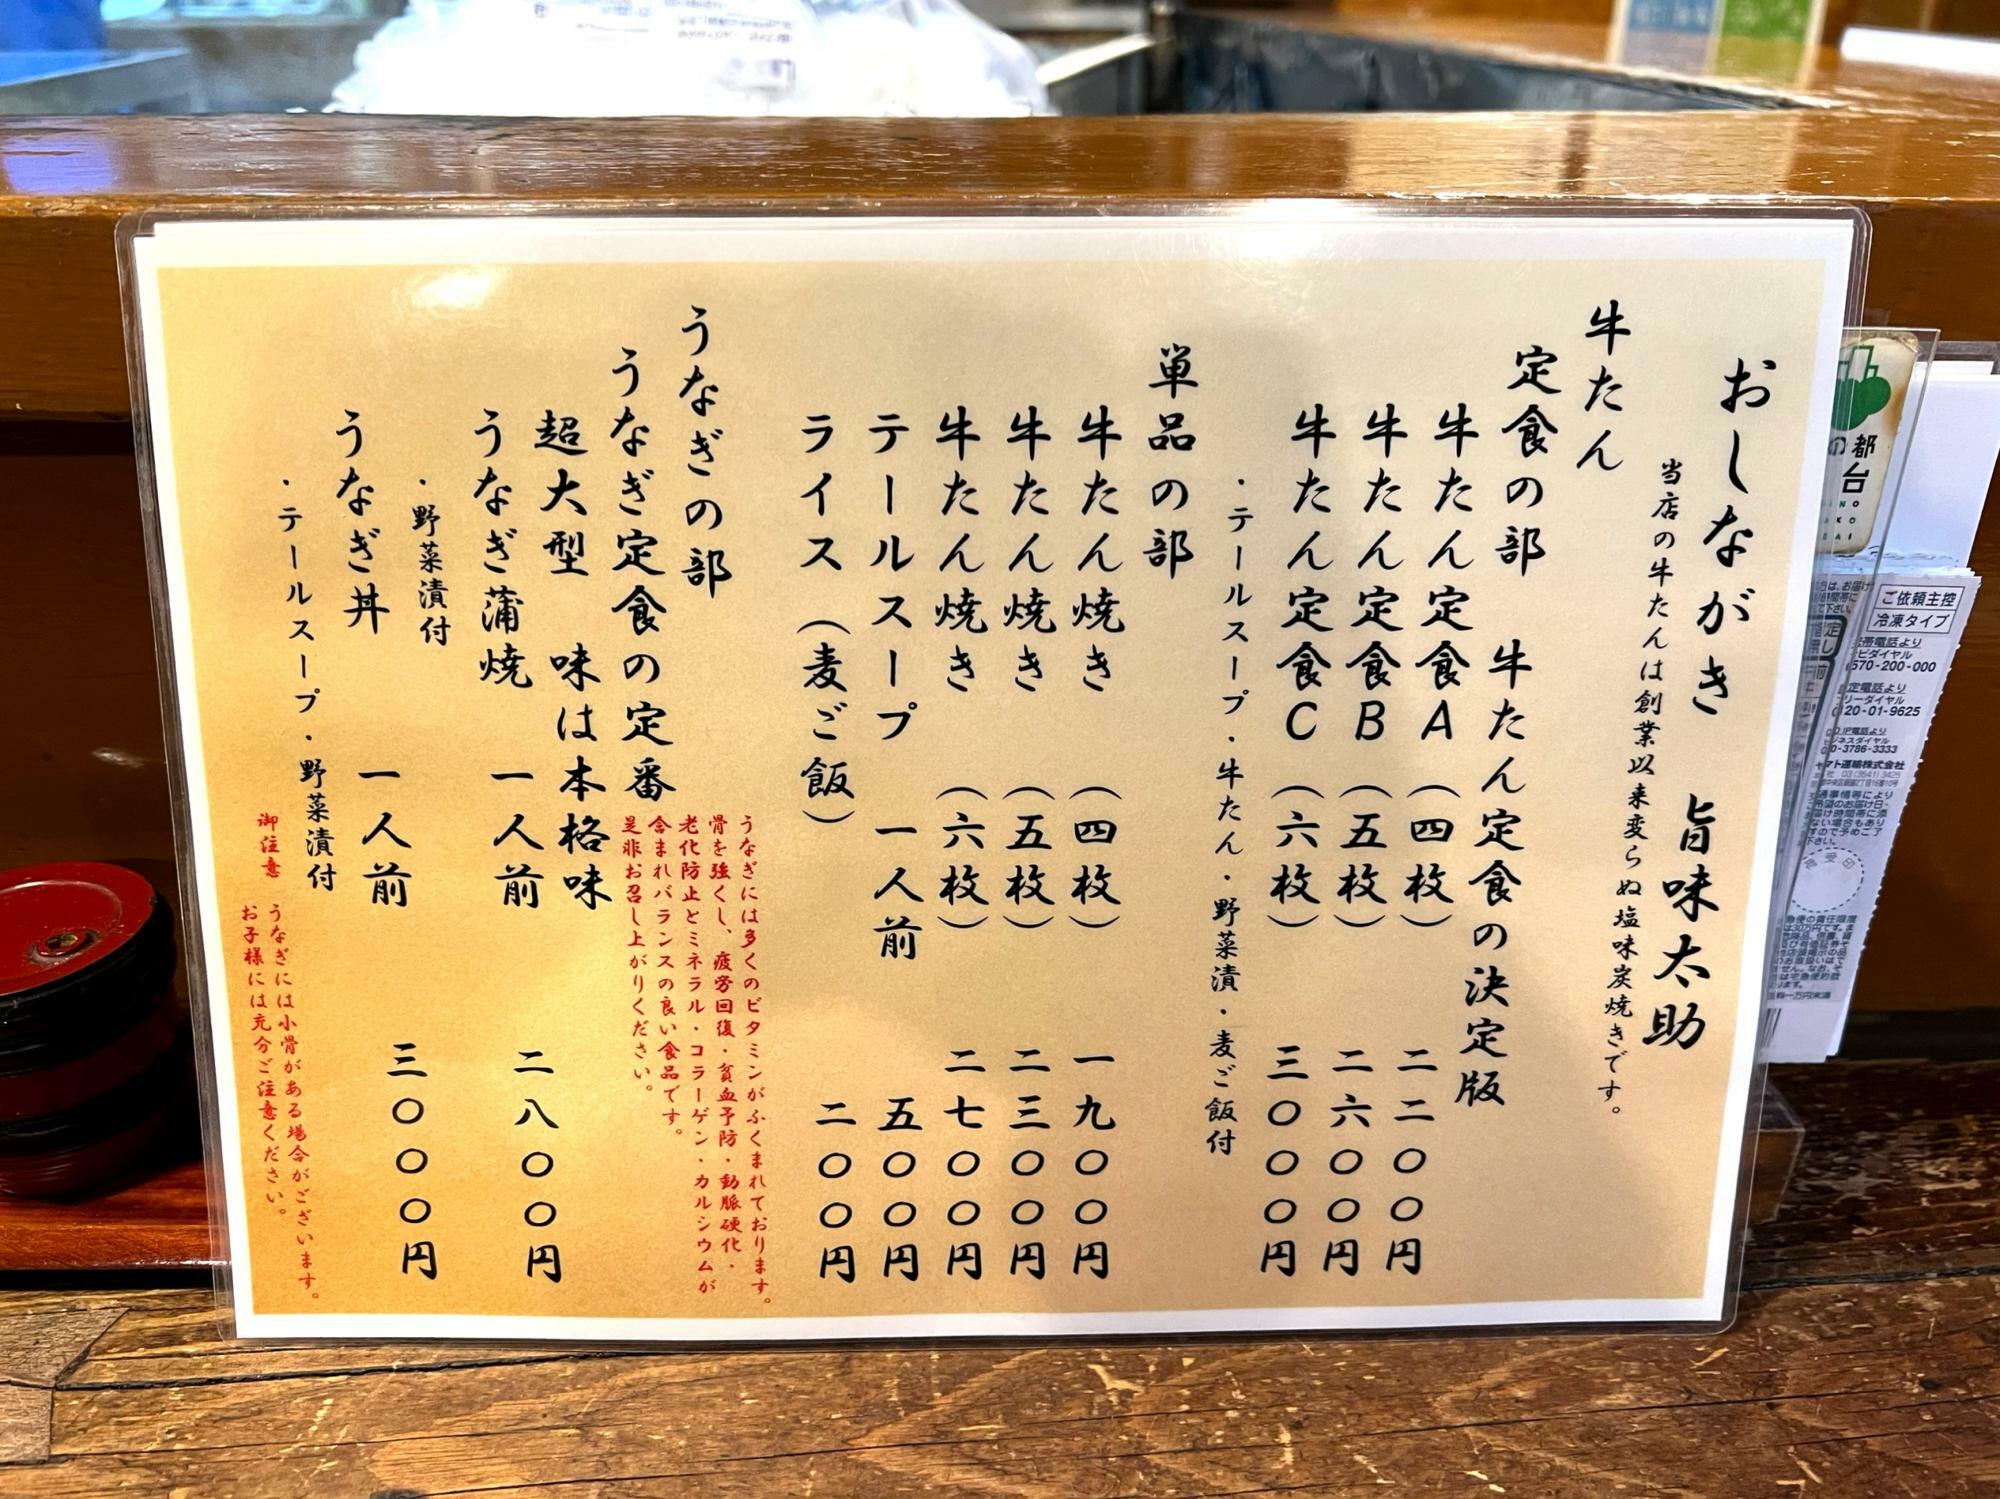 おしながき 旨味太助
当店の牛たんは創業以来変らぬ塩味炭焼きです。
牛たん
定食の部 牛たん定食の決定版
牛たん定食A (四枚) 二二〇〇円
牛たん定食B (五枚) 二六〇〇円
牛たん定食C (六枚) 三〇〇〇円
・テールスープ・牛たん・野菜漬・麦ご飯付
単品の部
牛たん焼き (四枚) 一九〇〇円
牛たん焼き (五枚) 二三〇〇円
牛たん焼き (六枚) 二七〇〇円
テールスープ 一人前 五〇〇円
ライス(麦ご飯) 二〇〇円
うなぎの部
うなぎ定食の定番
超大型 味は本格味
うなぎには多くのビタミンがふくまれております。
骨を強くし、疲労回復・貧血予防・動脈硬化・
老化防止とミネラル・コラーゲン・カルシウムが
含まれバランスの良い食品です。
是非お召し上がりください。
うなぎ蒲焼 一人前 二八〇〇円
・野菜漬付
うなぎ丼 一人前 三〇〇〇円
・テールスープ・野菜漬付
御注意 うなぎには小骨がある場合がございます。
お子様には充分ご注意ください。
の都
台
ご依頼主控
冷凍タイプ
570-200-000
120-01-9625
0-3786-3333
ヤマト運輸株式会社